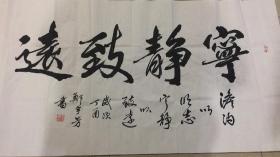 寧靜致遠
淡泊
以
明志
寧靜
以
致遠
歲次
丁酉
鄭
書